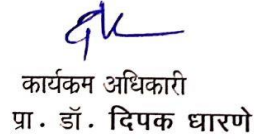 कार्यकम अधिकारी
प्रा. डॉ. दिपक धारणे